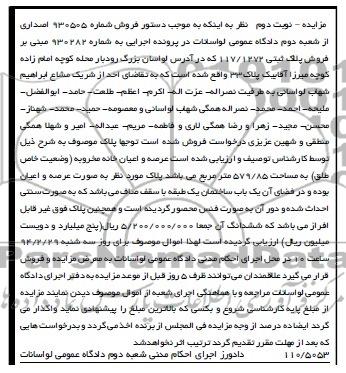 مزایده – نوبت دوم نظر به اینکه به موجب دستور فروش شماره ۹۳۰۵۰۵ اصداری
از شعبه دوم دادگاه عمومی لواسانات در پرونده اجرایی به شماره ۹۳۰۲۸۲ مبنی بر
فروش پلاک ثبتی ۱۱۷/۱۲۷۲ که در آدرس لواسان بزرگ رودبار محله کوچه امام زاده
کوچه میرزا آقابیک پلاک۳۳ واقع شده است که به تقاضای احد از شریک مشاع ابراهیم
شهاب لواسانی به طرفیت نصراله- عزت اله- اکرم- اعظم- طلعت- حامد- ابوالفضل-
ملیحه- احمد- محمد- نصر اله همگی شهاب لواسانی و معصومه- حمید- محمد- شهناز-
محسن- مجید- زهرا و رضا همگی لاری و فاطمه- مریم- عبداله- امیر و شهلا همگی
منطقی و شهین عزیزی درخواست فروش شده است توجها پلاک موصوف به شرح ذیل
توسط کارشناس توصیف و ارزیابی شده است عرصه و اعیان خانه مخروبه (وضعیت خاص
طلق) به مساحت ۵۷۹/۸۵ متر مربع می باشد پلاک مورد نظر به صورت عرصه و اعیان
بوده و در فضای آن یک باب ساختمان یک طبقه با سقف صاف می باشد که به صورت سنتی
احداث شده و دور آن به صورت فنس محصور گردیده است و همچنین پلاک فوق غیر قابل
افراز می باشد که ششدانگ آن جمعا ۵/۲۰۰/۰۰۰/۰۰۰ ریال(پنج میلیارد و دویست
میلیون ریال) ارزیابی گردیده است لهذا اموال موصوف برای روز سه شنبه ۹۴/۲/۲۹
ساعت ۱۰ در محل اجرای احکام مدنی دادگاه عمومی لواسانات به معرض مزایده و فروش
قرار می گیرد علاقمندان می توانند ظرف ۵ روز قبل از موعد مزایده به دفتر اجرای دادگاه
عمومی لواسانات مراجعه و با هماهنگی اجرای شعبه از اموال موصوف دیدن نمایند مزایده
از مبلغ پایه کارشناسی شروع و بکسی که بالاترین مبلغ را پیشنهادی نماید واگذار می
گردد ایضاده درصد از وجه مزایده فی المجلس از برنده اخذ می گردد و بدرخواست هایی
که بعد از مهلت مقرر تقدیم گردد ترتیب اثر نخواهدشد
۱۱۰/۵۰۵۳ دادورز اجرای احکام مدنی شعبه دوم دادگاه عمومی لواسانات